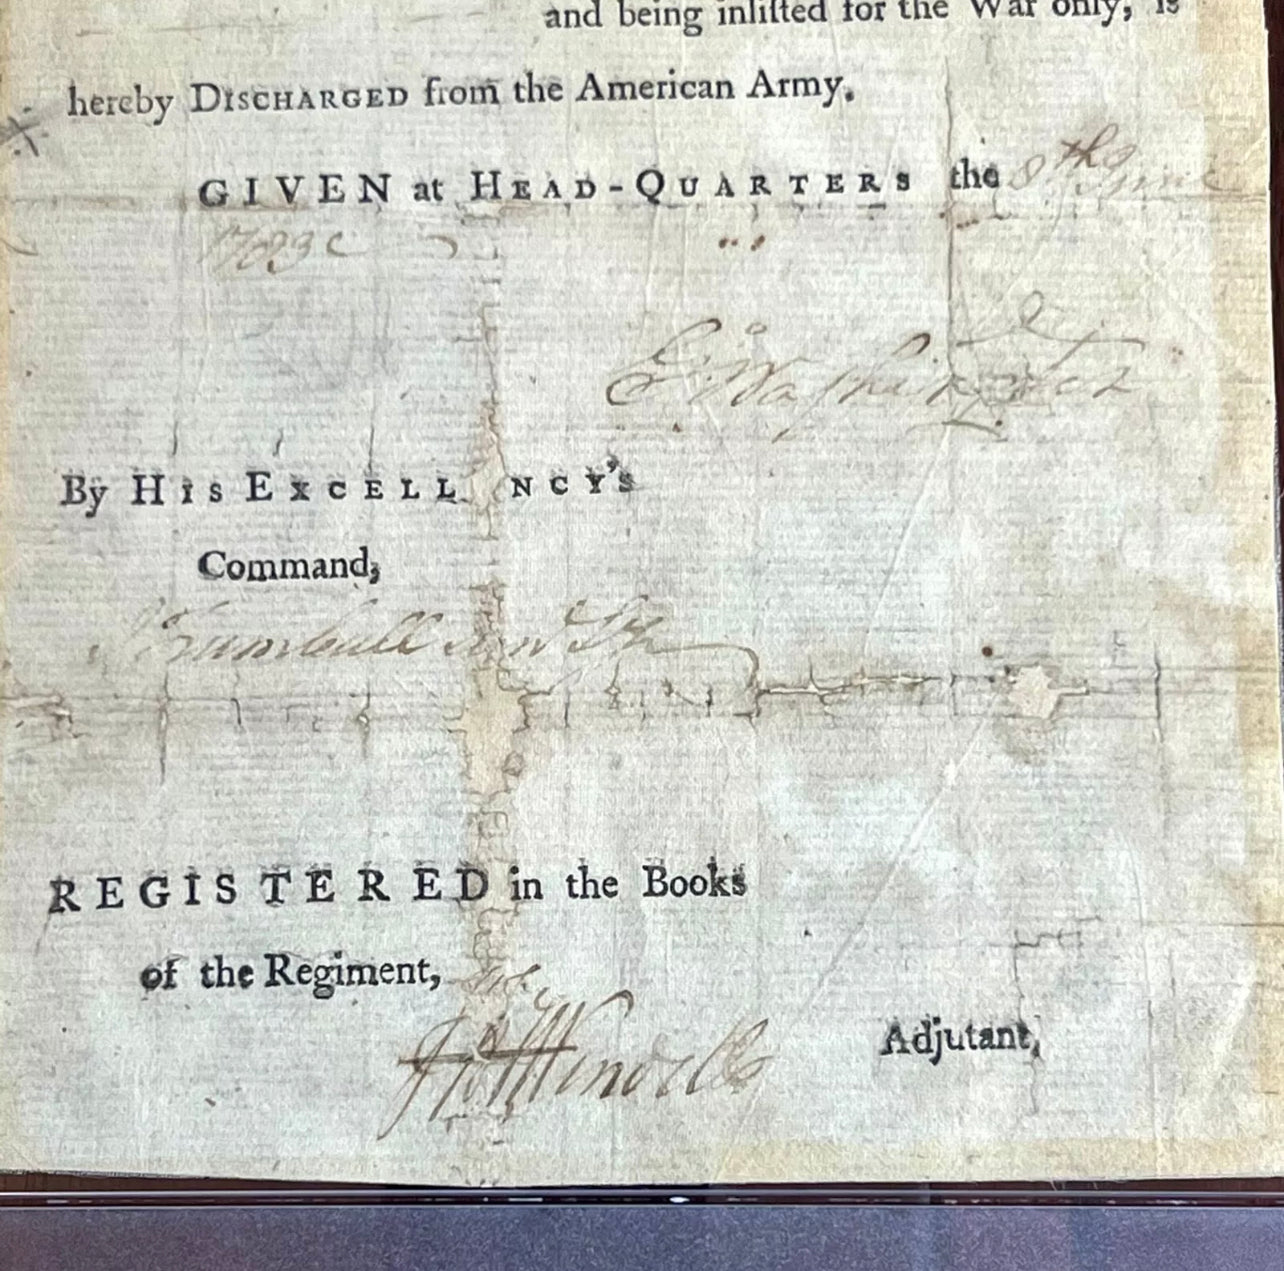 and being inliſted for the War only, is
hereby DISCHARGED from the American Army.
GIVEN at HEAD-QUARTERS the 8th June
1783
G. Washington
By HIS EXCELL NCY's
Command,
J Trumbull Jun Sec
REGISTERED in the Books
of the Regiment,
Adjutant,